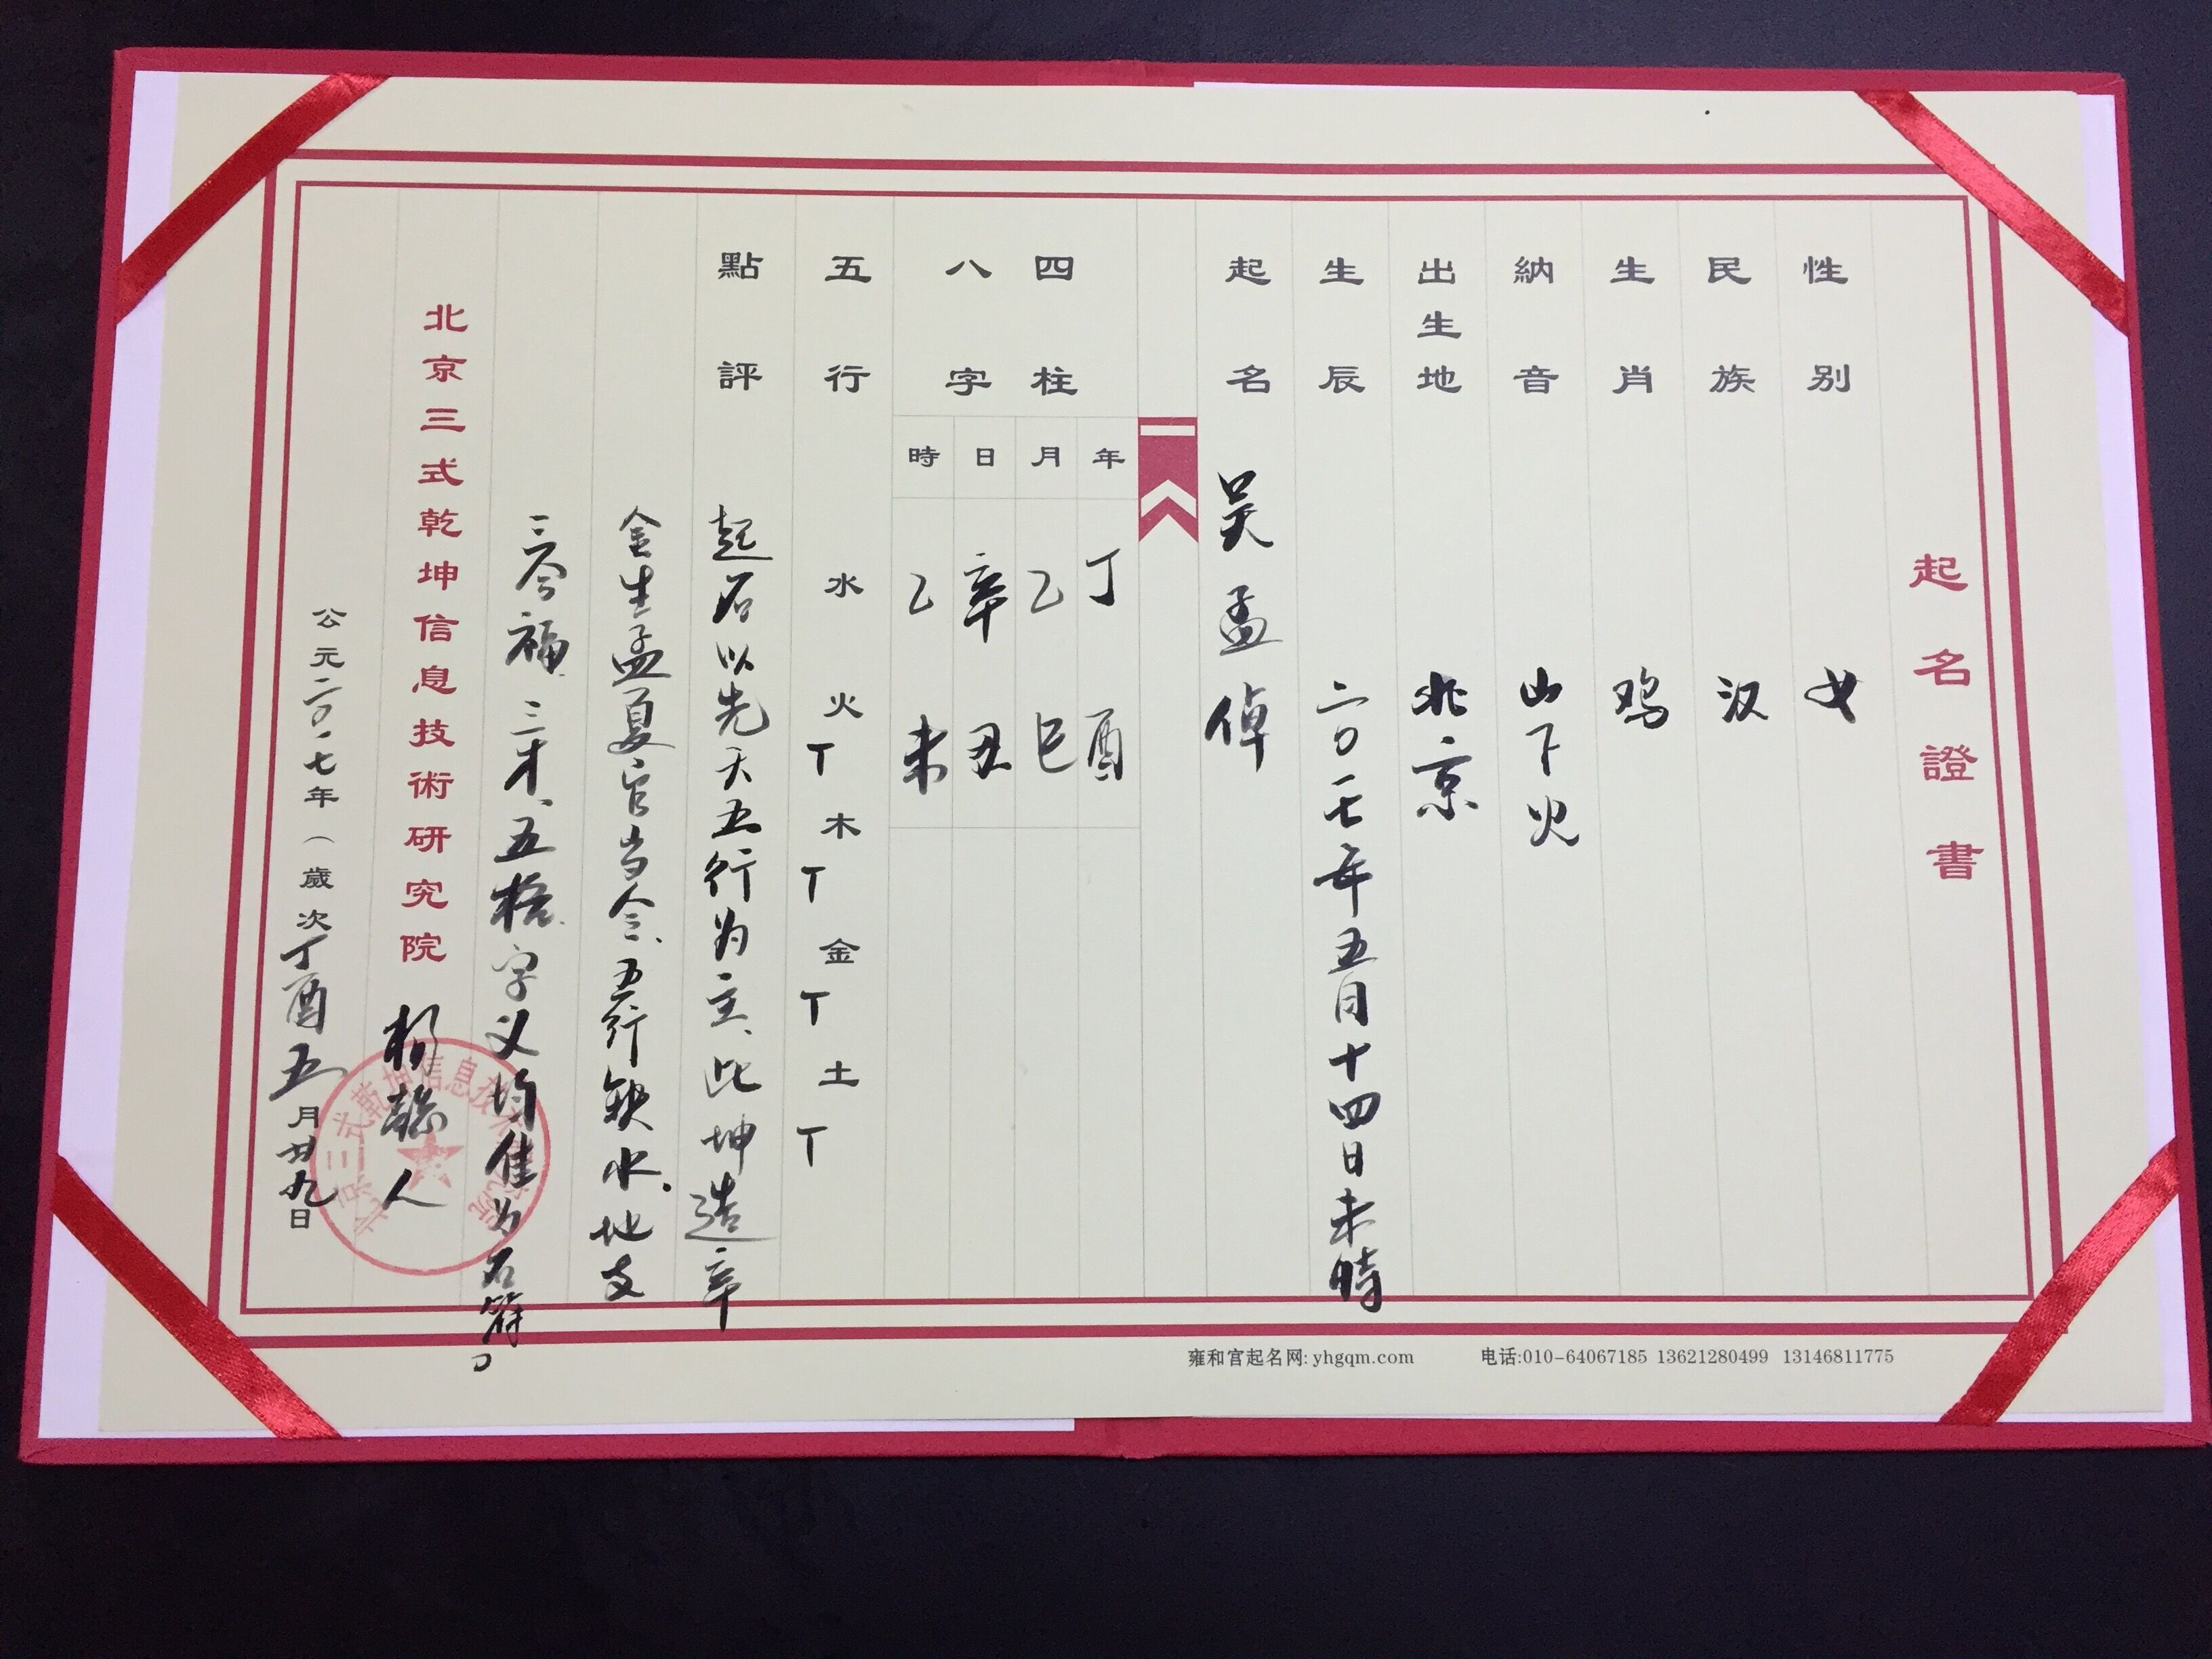 起名證書
性别 女
民族 汉
生肖 鸡
納音 山下火
出生地 北京
生辰 二0一七年五月十四日未時
起名 吴孟倬
四柱
八字
年 丁酉
月 乙巳
日 辛丑
時 乙未
五行 水 火丅 木丅 金丅 土丅
點評 起名以先天五行为主、此坤造辛
金生孟夏官当令、五行缺水、地支
三合福、三才、五格、字义均佳为名符。
北京三式乾坤信息技術研究院 杨懿人
公元二0一七年（歲次丁酉五月廿九日
北京三式乾坤信息技术研究院
雍和宫起名网: yhgqm.com 电话:010-64067185 13621280499 13146811775